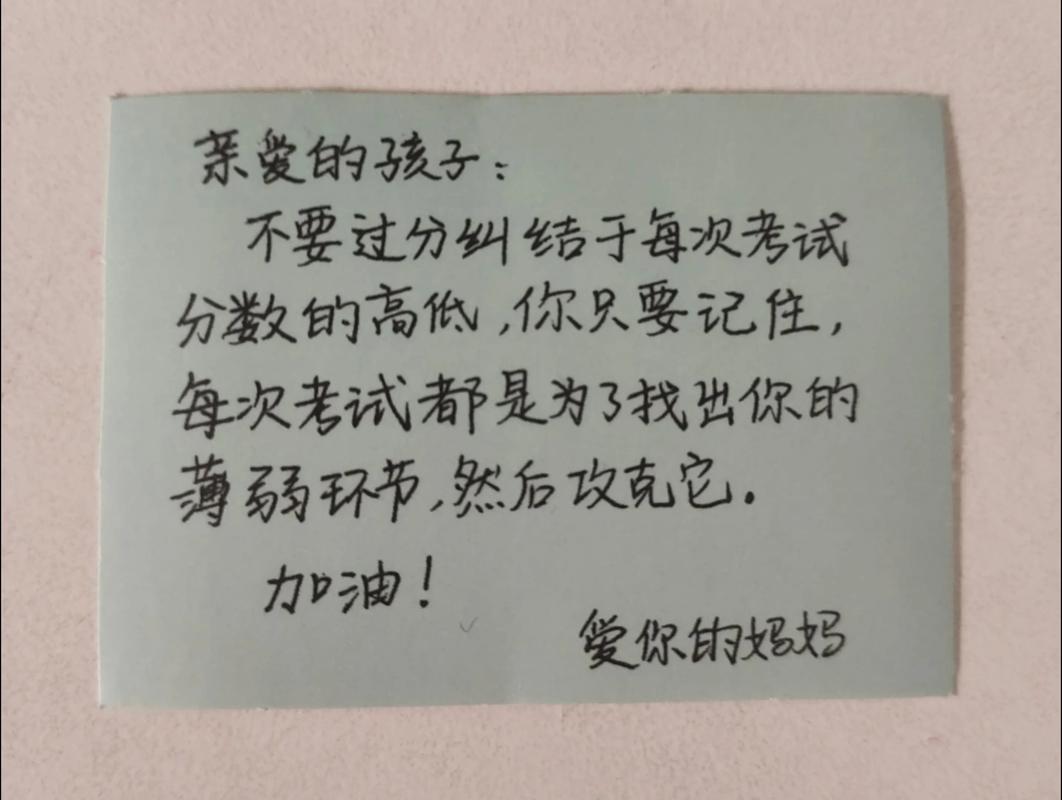 亲爱的孩子：
不要过分纠结于每次考试
分数的高低，你只要记住，
每次考试都是为了找出你的
薄弱环节，然后攻克它。
加油！
爱你的妈妈